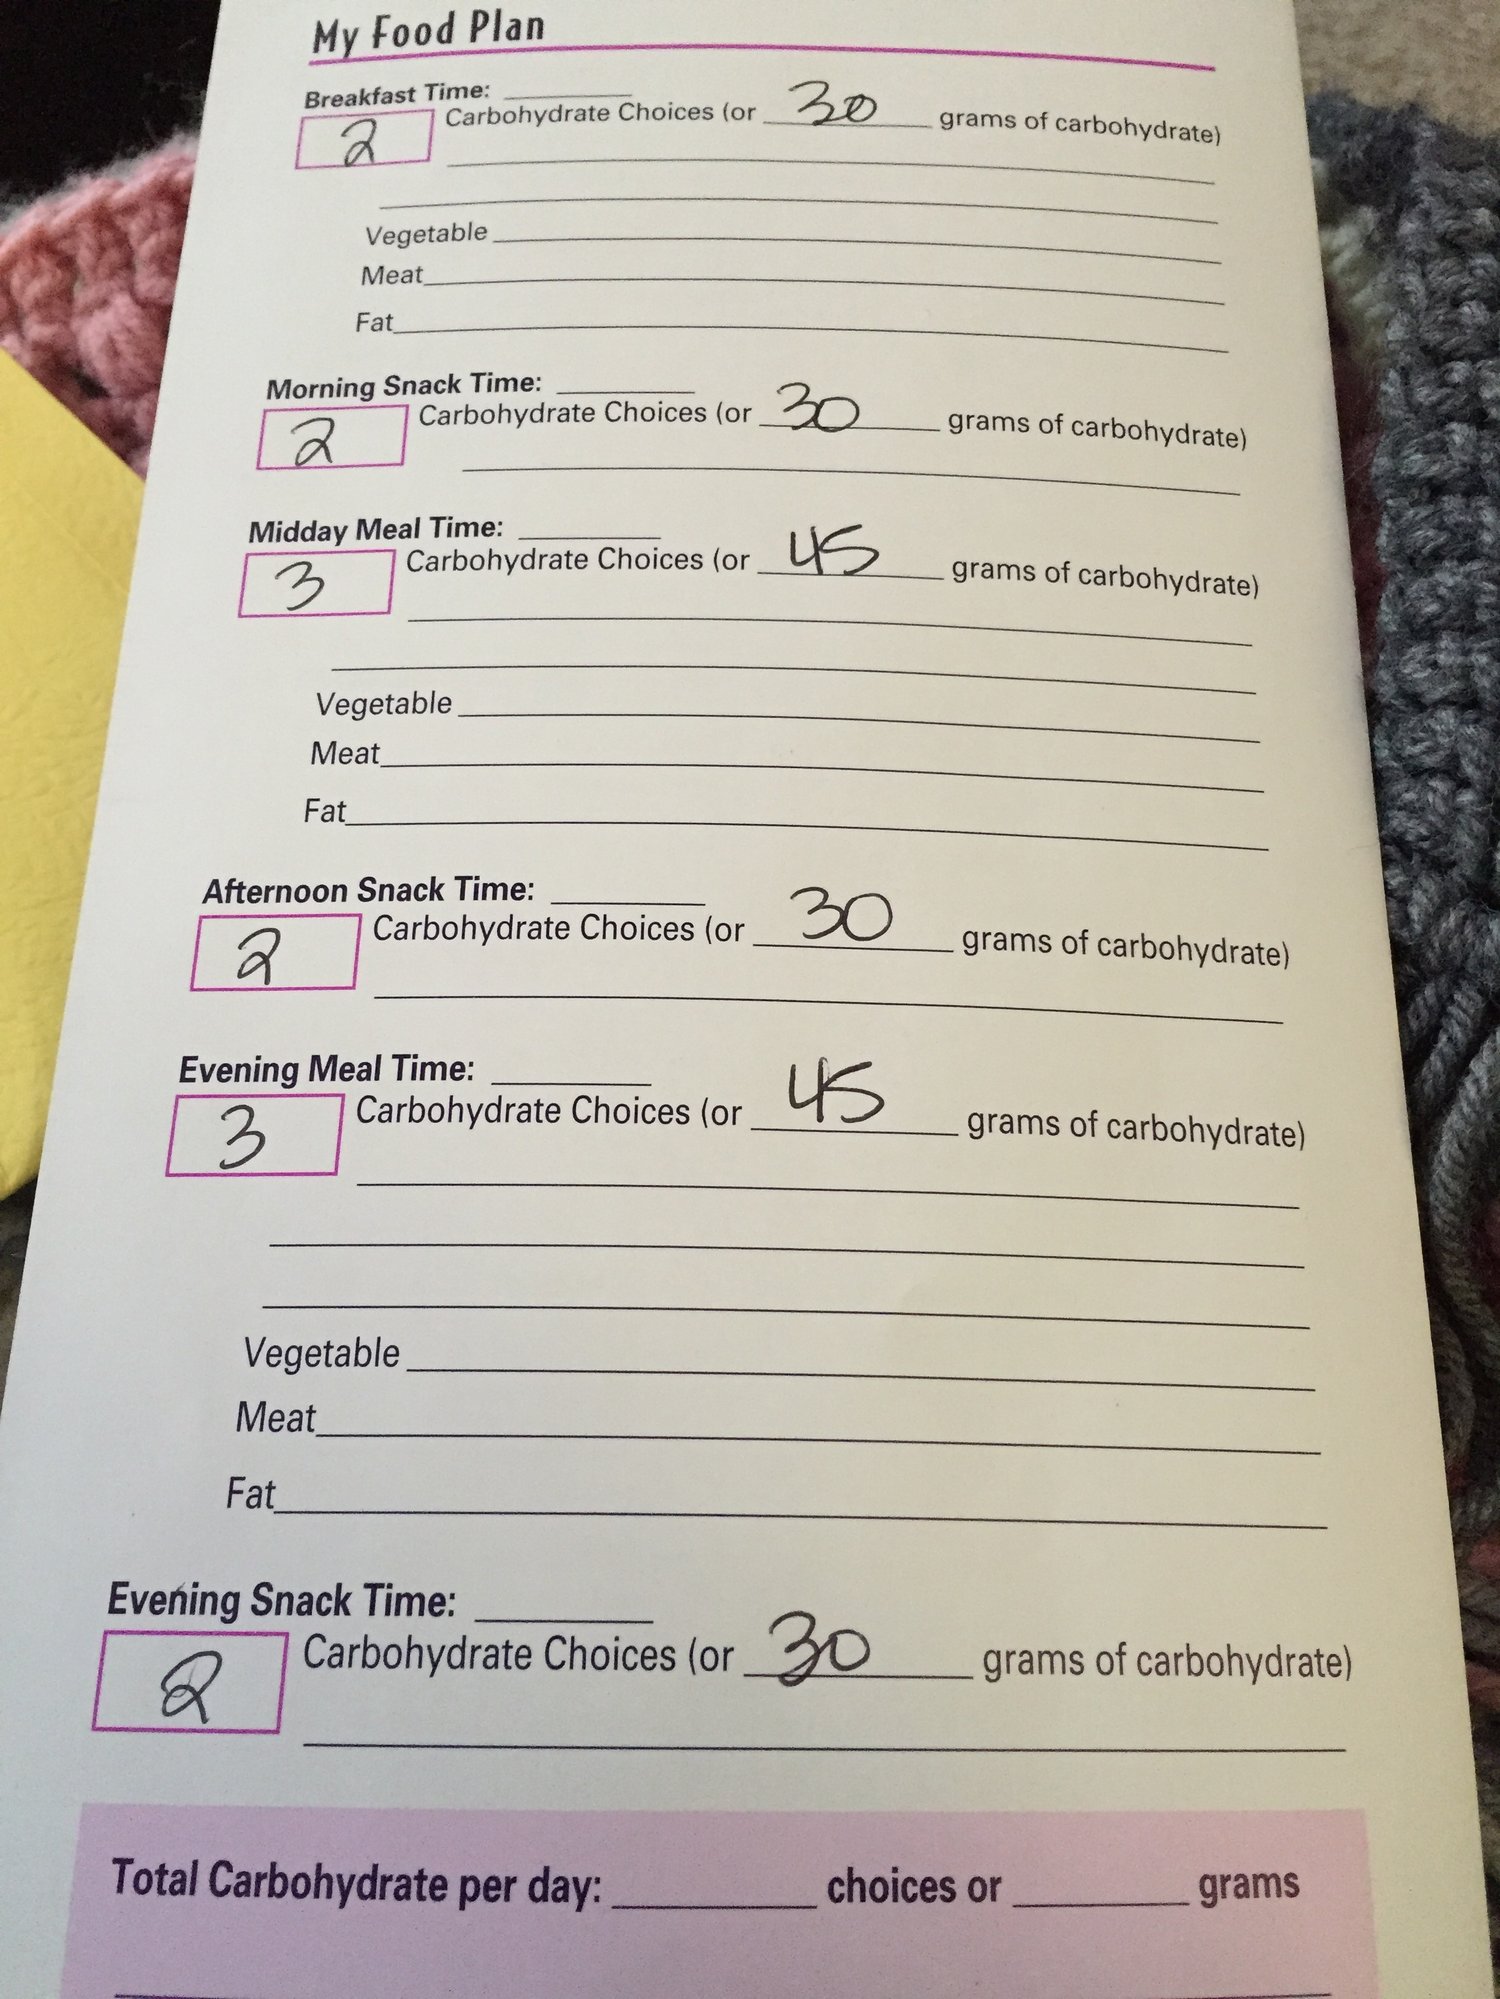 My Food Plan
Breakfast Time: ________
2 Carbohydrate Choices (or 30 grams of carbohydrate)
Vegetable
Meat
Fat
Morning Snack Time: ________
2 Carbohydrate Choices (or 30 grams of carbohydrate)
Midday Meal Time: ________
3 Carbohydrate Choices (or 45 grams of carbohydrate)
Vegetable
Meat
Fat
Afternoon Snack Time: ________
2 Carbohydrate Choices (or 30 grams of carbohydrate)
Evening Meal Time: ________
3 Carbohydrate Choices (or 45 grams of carbohydrate)
Vegetable
Meat
Fat
Evening Snack Time: ________
2 Carbohydrate Choices (or 30 grams of carbohydrate)
Total Carbohydrate per day: ________ choices or ________ grams